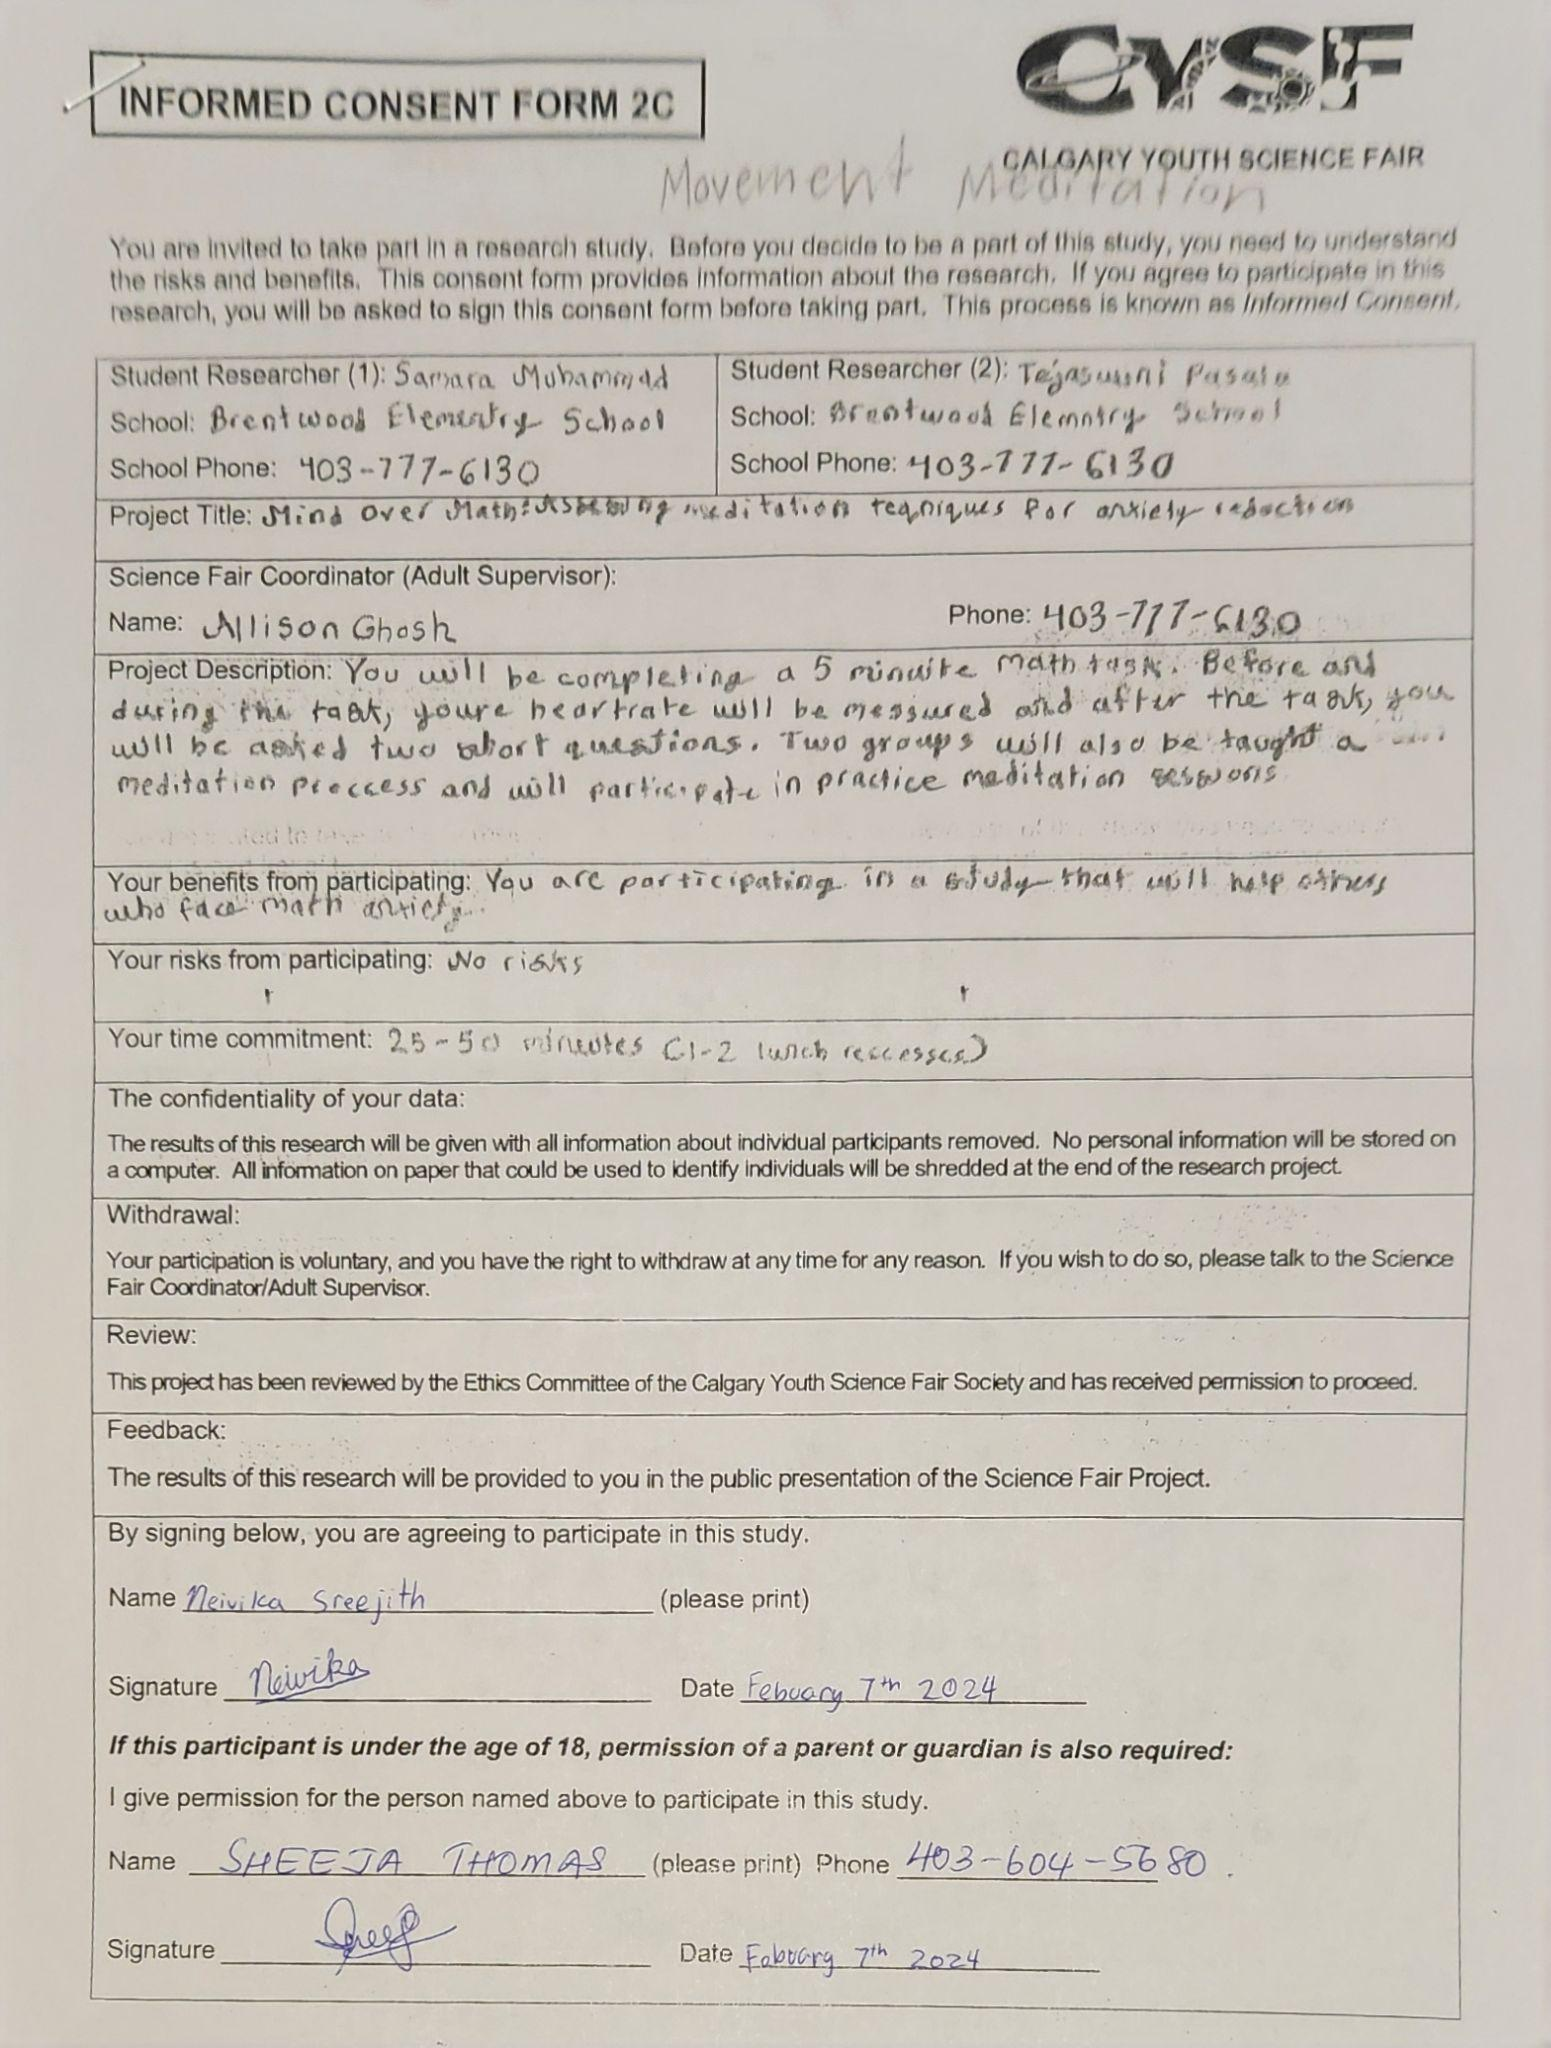 INFORMED CONSENT FORM 2C
CYSF
CALGARY YOUTH SCIENCE FAIR
Movement Meditation
You are invited to take part in a research study. Before you decide to be a part of this study, you need to understand
the risks and benefits. This consent form provides information about the research. If you agree to participate in this
research, you will be asked to sign this consent form before taking part. This process is known as Informed Consent.
Student Researcher (1): Samara Muhammad
School: Brentwood Elementry School
School Phone: 403-777-6130
Student Researcher (2): Tejasuuni Pasala
School: Brentwood Elemntry School
School Phone: 403-777-6130
Project Title: Mind Over Math: Assessing meditation teqniques for anxiety reduction
Science Fair Coordinator (Adult Supervisor):
Name: Allison Ghosh
Phone: 403-777-6130
Project Description: You will be completing a 5 minuite math task. Before and
during the task, youre heartrate will be messured and after the task, you
will be asked two short questions. Two groups will also be taught a
meditation proccess and will participate in practice meditation sessions
Your benefits from participating: You are participating in a study that will help others
who face math anxiety.
Your risks from participating: No risks
Your time commitment: 25-50 minuutes (1-2 lunch reccesses)
The confidentiality of your data:
The results of this research will be given with all information about individual participants removed. No personal information will be stored on
a computer. All information on paper that could be used to identify individuals will be shredded at the end of the research project.
Withdrawal:
Your participation is voluntary, and you have the right to withdraw at any time for any reason. If you wish to do so, please talk to the Science
Fair Coordinator/Adult Supervisor.
Review:
This project has been reviewed by the Ethics Committee of the Calgary Youth Science Fair Society and has received permission to proceed.
Feedback:
The results of this research will be provided to you in the public presentation of the Science Fair Project.
By signing below, you are agreeing to participate in this study.
Name Neivika Sreejith (please print)
Signature Neivika Date Febuary 7th 2024
If this participant is under the age of 18, permission of a parent or guardian is also required:
I give permission for the person named above to participate in this study.
Name SHEEJA THOMAS (please print) Phone 403-604-5680.
Signature Date Febuary 7th 2024